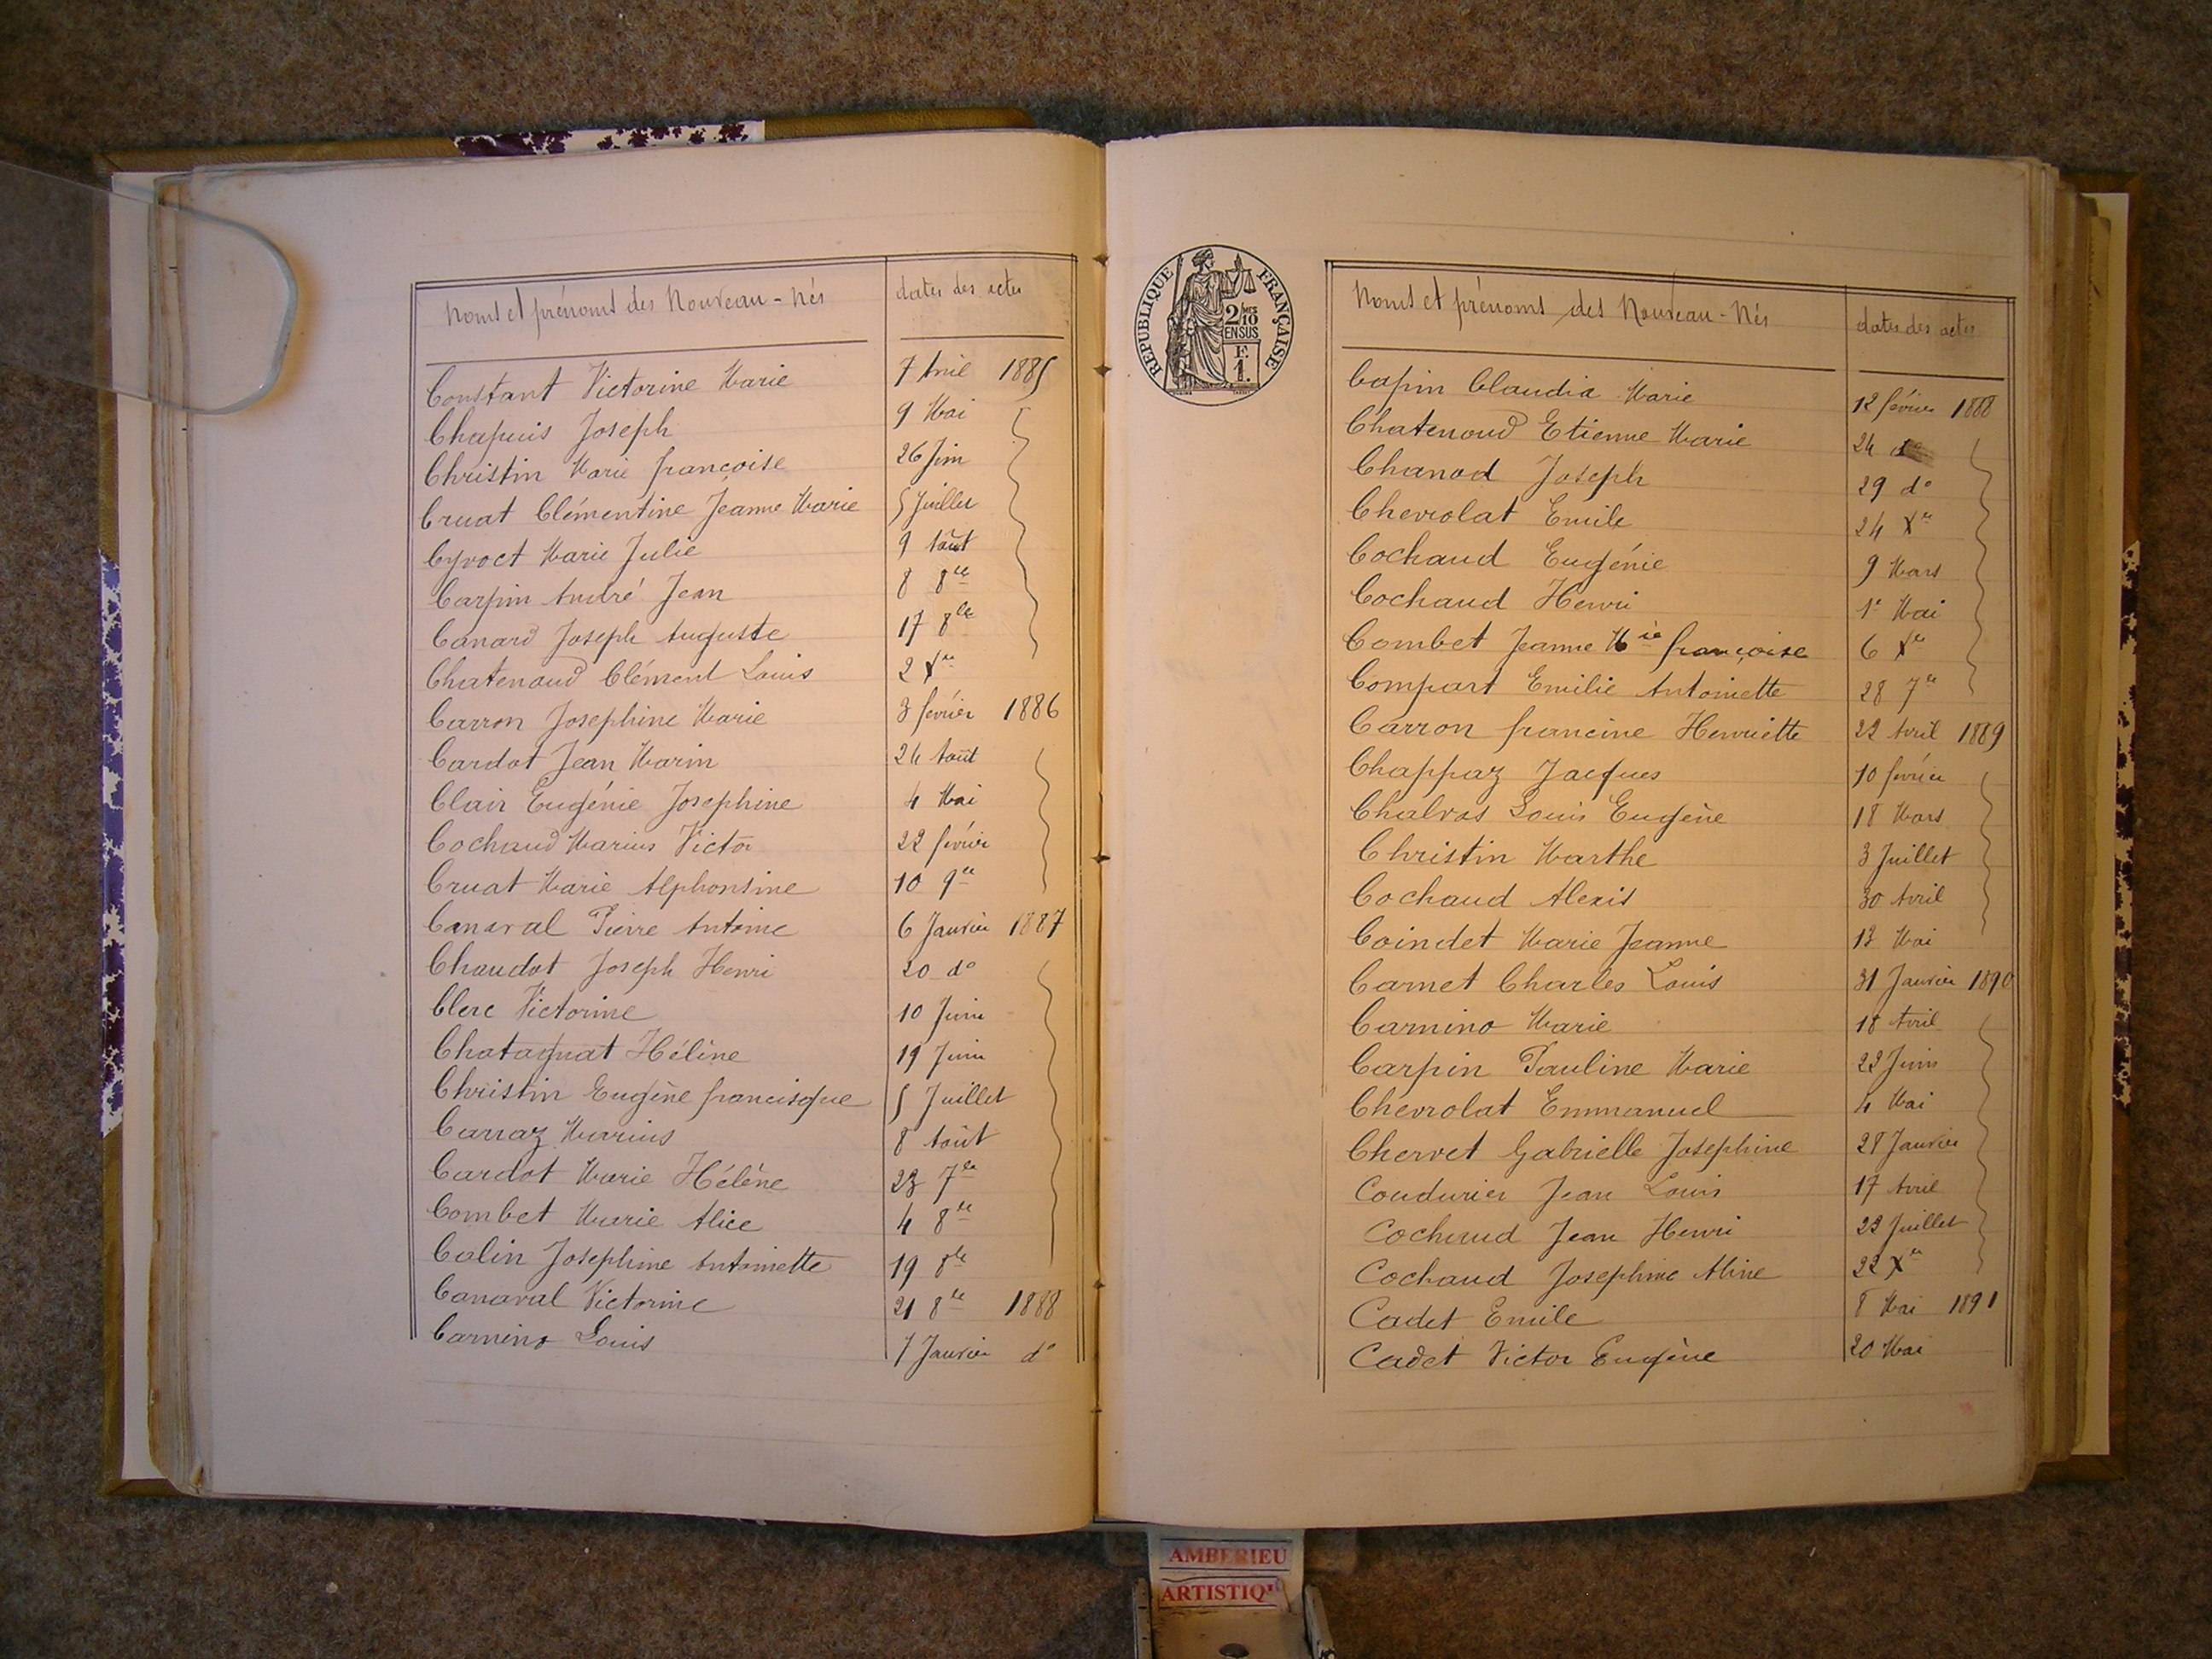 Noms et prénoms des Nouveau-Nés dates des actes
Constant Victorine Marie 7 Avril 1885
Chapuis Joseph 9 Mai
Christin Marie françoise 26 Juin
Cruat Clémentine Jeanne Marie 5 Juillet
Cyvoct Marie Julie 9 Août
Carpin André Jean 8 8bre
Canard Joseph Auguste 17 8bre
Chatenoud Clément Louis 2 Xbre
Carron Josephine Marie 3 février 1886
Cardot Jean Marin 24 Août
Clair Eugénie Josephine 4 Mai
Cochaud Marius Victor 22 février
Cruat Marie Alphonsine 10 9bre
Canaval Pierre Antoine 6 Janvier 1887
Chaudot Joseph Henri 20 do
Clerc Victorine 10 Juin
Chatagnat Hélène 19 Juin
Christin Eugène francisque 5 Juillet
Carraz Marius 8 Août
Cardot Marie Hélène 23 7bre
Combet Marie Alice 4 8bre
Colin Josephine Antoinette 19 8bre
Canaval Victorine 21 8bre 1888
Camino Louis 7 Janvier do
RÉPUBLIQUE FRANÇAISE
2/10 MES
EN SUS
F.
1.
Noms et prénoms des Nouveau-Nés dates des actes
Capin Claudia Marie 12 février 1888
Chatenoud Etienne Marie 24
Chanod Joseph 29 do
Chevrolat Emile 24 Xbre
Cochaud Eugénie 9 Mars
Cochaud Henri 1er Mai
Combet Jeanne Mie françoise 6 Xbre
Compart Emilie Antoinette 28 7bre
Carron francine Henriette 22 Avril 1889
Chappaz Jacques 10 février
Chalvas Louis Eugène 18 Mars
Christin Marthe 3 Juillet
Cochaud Alexis 30 Avril
Coindet Marie Jeanne 13 Mai
Carnet Charles Louis 31 Janvier 1890
Camino Marie 18 Avril
Carpin Pauline Marie 22 Juin
Chevrolat Emmanuel 4 Mai
Chervet Gabrielle Josephine 28 Janvier
Coudurier Jean Louis 17 Avril
Cochaud Jean Henri 22 Juillet
Cochaud Josephine Aline 22 Xbre
Cadet Emile 8 Mai 1891
Cadet Victor Eugène 20 Mai
AMBERIEU
ARTISTIQ